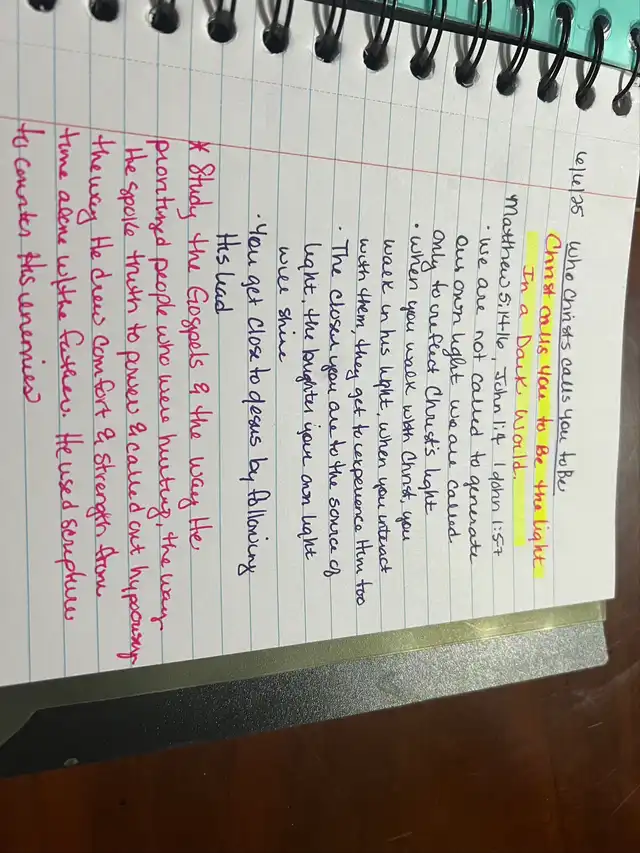 6/6/25 Who Christs calls you to Be
Christ calls you to Be the light
In a Dark World.
Matthew 5:14-16, John 1:4 1 John 1:5-7
• We are not called to generate
our own light we are called
only to reflect Christ's light
• When you walk with Christ, you
walk in his light, when you interact
with them they get to experience Him too
• The closer you are to the source of
light, the brighter your own light
will shine
• You get close to Jesus by following
His lead
* Study the Gospels & the way He
prioritized people who were hurting, the way
He spoke truth to power & called out hypocrisy
the way He drew comfort & strength from
time alone w/the father. He used scripture
to counter His enemies